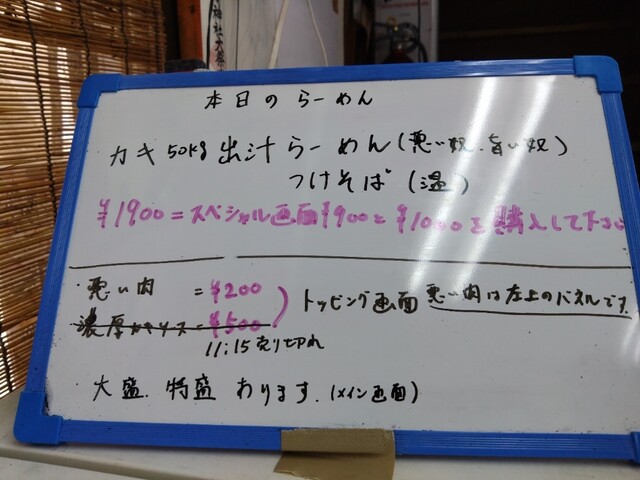 本日のらーめん
カキ50kg出汁らーめん(悪い奴.旨い奴)
つけそば(温)
¥1900=スペシャル画面¥900と¥1000を購入して下さい
悪い肉 =¥200
トッピング画面 悪い肉は左上のパネルです。
濃厚カキソース=¥500
11:15売り切れ
大盛.特盛あります.(メイン画面)